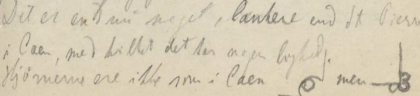 Det er endnu noget slankere end St Pierre
i Caen, med hvilket det har nogen Lighed.
Hjørnerne ere ikke som i Caen men